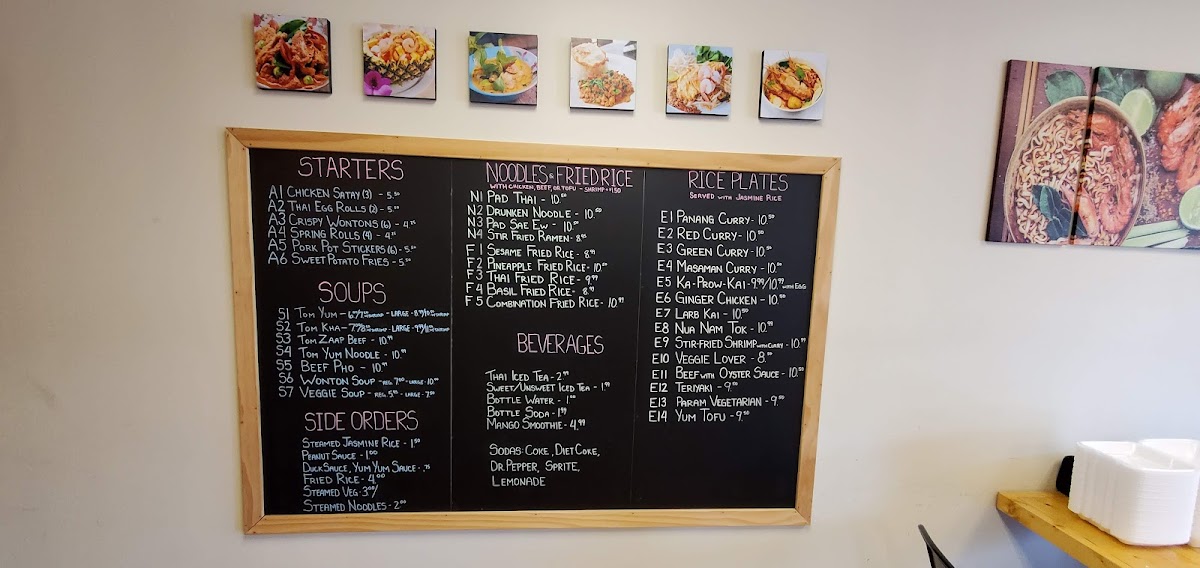 STARTERS
A1 CHICKEN SATAY (3) - 5.50
A2 THAI EGG ROLLS (2) - 5.50
A3 CRISPY WONTONS (6) - 4.75
A4 SPRING ROLLS (4) - 4.95
A5 PORK POT STICKERS (6) - 5.50
A6 SWEET POTATO FRIES - 5.50
SOUPS
S1 TOM YUM - LARGE -
S2 TOM KHA - LARGE -
S3 TOM ZAAP BEEF - 10.99
S4 TOM YUM NOODLE - 10.99
S5 BEEF PHO - 10.99
S6 WONTON SOUP - REG. 7.00 - LARGE - 10.99
S7 VEGGIE SOUP - REG. 5.95 - LARGE - 7.50
SIDE ORDERS
STEAMED JASMINE RICE - 1.50
PEANUT SAUCE - 1.00
DUCK SAUCE, YUM YUM SAUCE - .75
FRIED RICE - 4.00
STEAMED VEG - 3.00/
STEAMED NOODLES - 2.00
NOODLES & FRIED RICE
WITH CHICKEN, BEEF, OR TOFU - SHRIMP + $1.50
N1 PAD THAI - 10.50
N2 DRUNKEN NOODLE - 10.50
N3 PAD SAE EW - 10.50
N4 STIR FRIED RAMEN - 8.95
F1 SESAME FRIED RICE - 8.99
F2 PINEAPPLE FRIED RICE - 10.50
F3 THAI FRIED RICE - 9.99
F4 BASIL FRIED RICE - 8.99
F5 COMBINATION FRIED RICE - 10.99
BEVERAGES
THAI ICED TEA - 2.99
SWEET/UNSWEET ICED TEA - 1.99
BOTTLE WATER - 1.00
BOTTLE SODA - 1.99
MANGO SMOOTHIE - 4.99
SODAS: COKE, DIET COKE,
DR. PEPPER, SPRITE,
LEMONADE
RICE PLATES
SERVED WITH JASMINE RICE
E1 PANANG CURRY - 10.50
E2 RED CURRY - 10.50
E3 GREEN CURRY - 10.50
E4 MASAMAN CURRY - 10.50
E5 KA-PROW-KAI - 9.99/10.99 WITH EGG
E6 GINGER CHICKEN - 10.50
E7 LARB KAI - 10.50
E8 NUA NAM TOK - 10.99
E9 STIR-FRIED SHRIMP WITH CURRY - 10.99
E10 VEGGIE LOVER - 8.99
E11 BEEF WITH OYSTER SAUCE - 10.50
E12 TERIYAKI - 9.50
E13 PARAM VEGETARIAN - 9.50
E14 YUM TOFU - 9.50